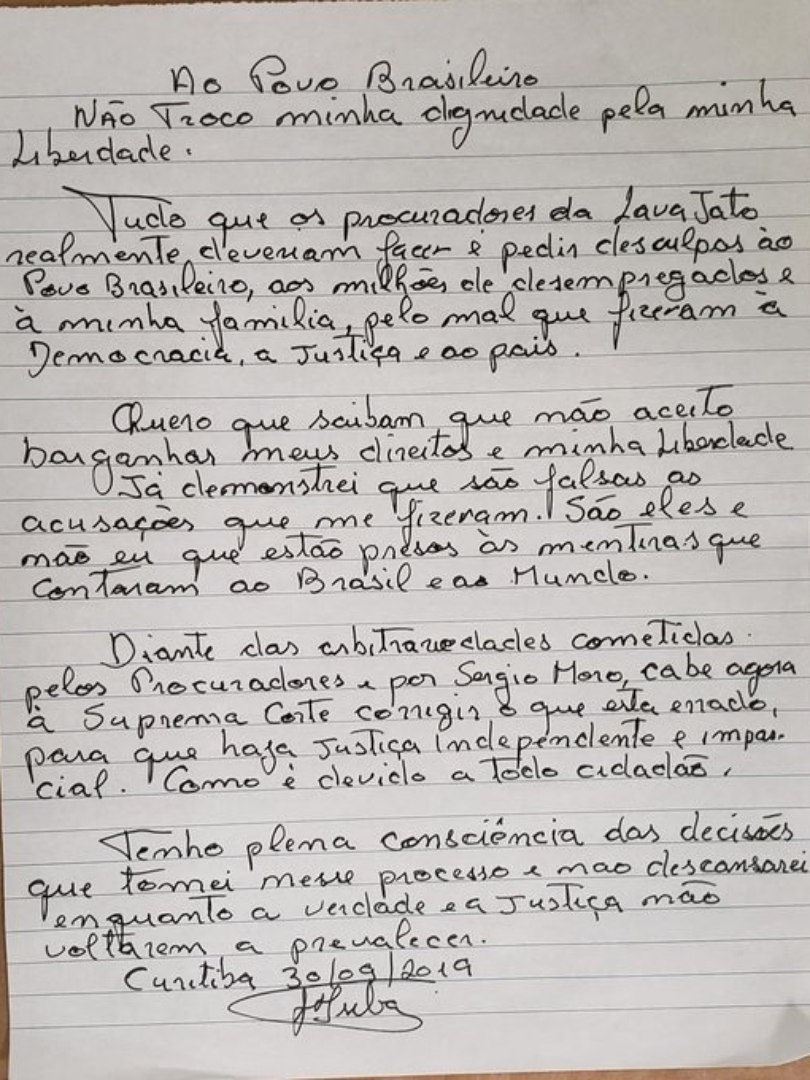 Ao Povo Brasileiro
Não Troco minha dignidade pela minha
Liberdade.
Tudo que os procuradores da Lava Jato
realmente deveriam fazer é pedir desculpas ào
Povo Brasileiro, aos milhões de desempregados e
à minha familia, pelo mal que fizeram à
Democracia, a Justiça e ao pais.
Quero que saibam que não aceito
barganhar meus direitos e minha Liberdade
Já demonstrei que são falsas as
acusações que me fizeram. São eles e
não eu que estão presos às mentiras que
contaram ao Brasil e ao Mundo.
Diante das arbitrariedades cometidas
pelos Procuradores e por Sergio Moro, cabe agora
à Suprema Corte corrigir o que esta errado,
para que haja Justiça independente e impar-
cial. Como é devido a todo cidadão.
Tenho plena consciência das decisões
que tomei nesse processo e não descansarei
enquanto a verdade e a Justiça não
voltarem a prevalecer.
Curitiba 30/09/2019
Lula